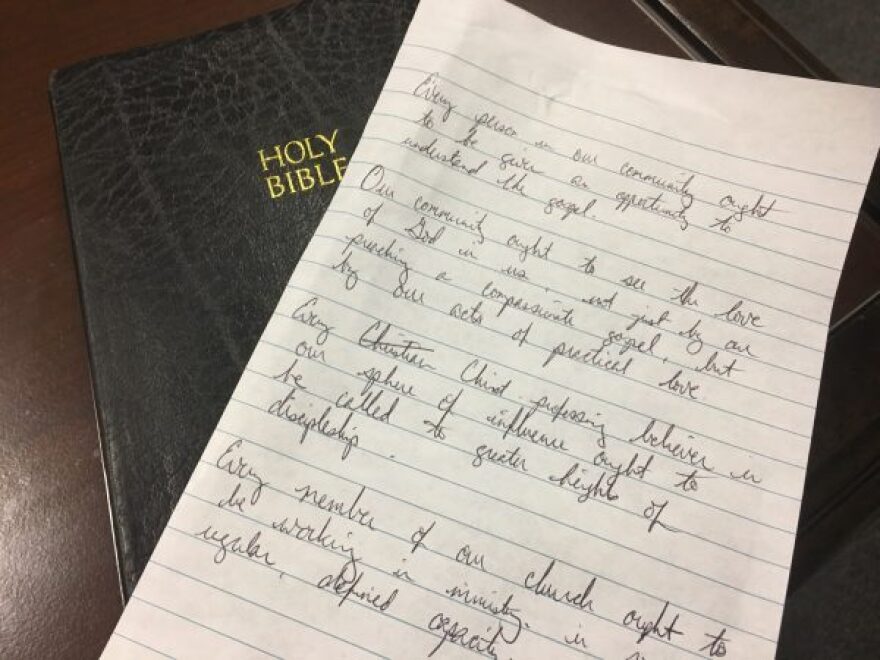 HOLY
BIBLE
Every person in our community ought
to be given an opportunity to
understand the gospel.
Our community ought to see the love
of God in us, not just by our
preaching a compassionate gospel, but
by our acts of practical love
Every Christian Christ professing believer in
our sphere of influence ought to
be called to greater height of
discipleship.
Every member of our church ought to
be working in ministry, in
regular, defined capacity.